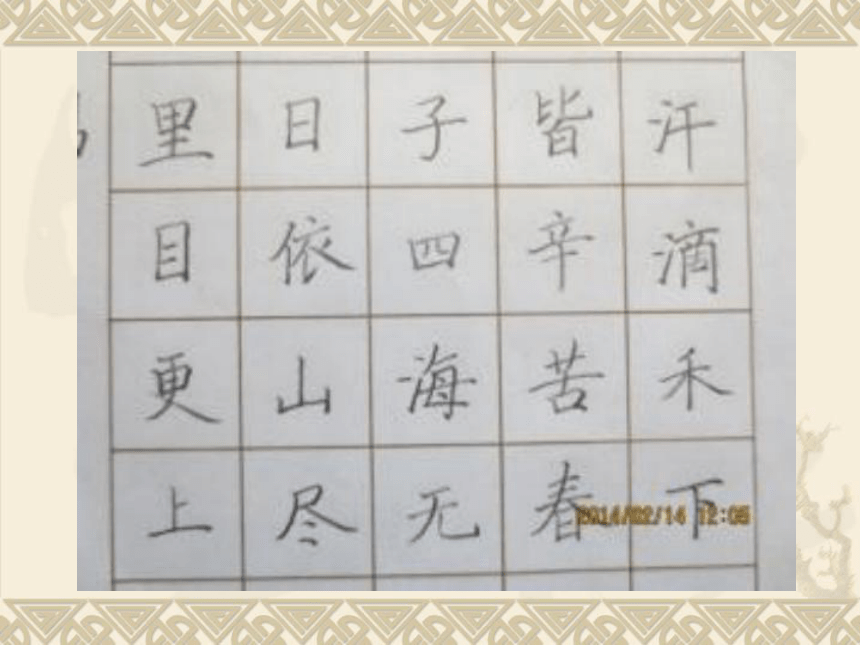 里 日 子 皆 汗
目 依 四 辛 滴
更 山 海 苦 禾
上 尽 无 春 下
2014/02/14 12:05